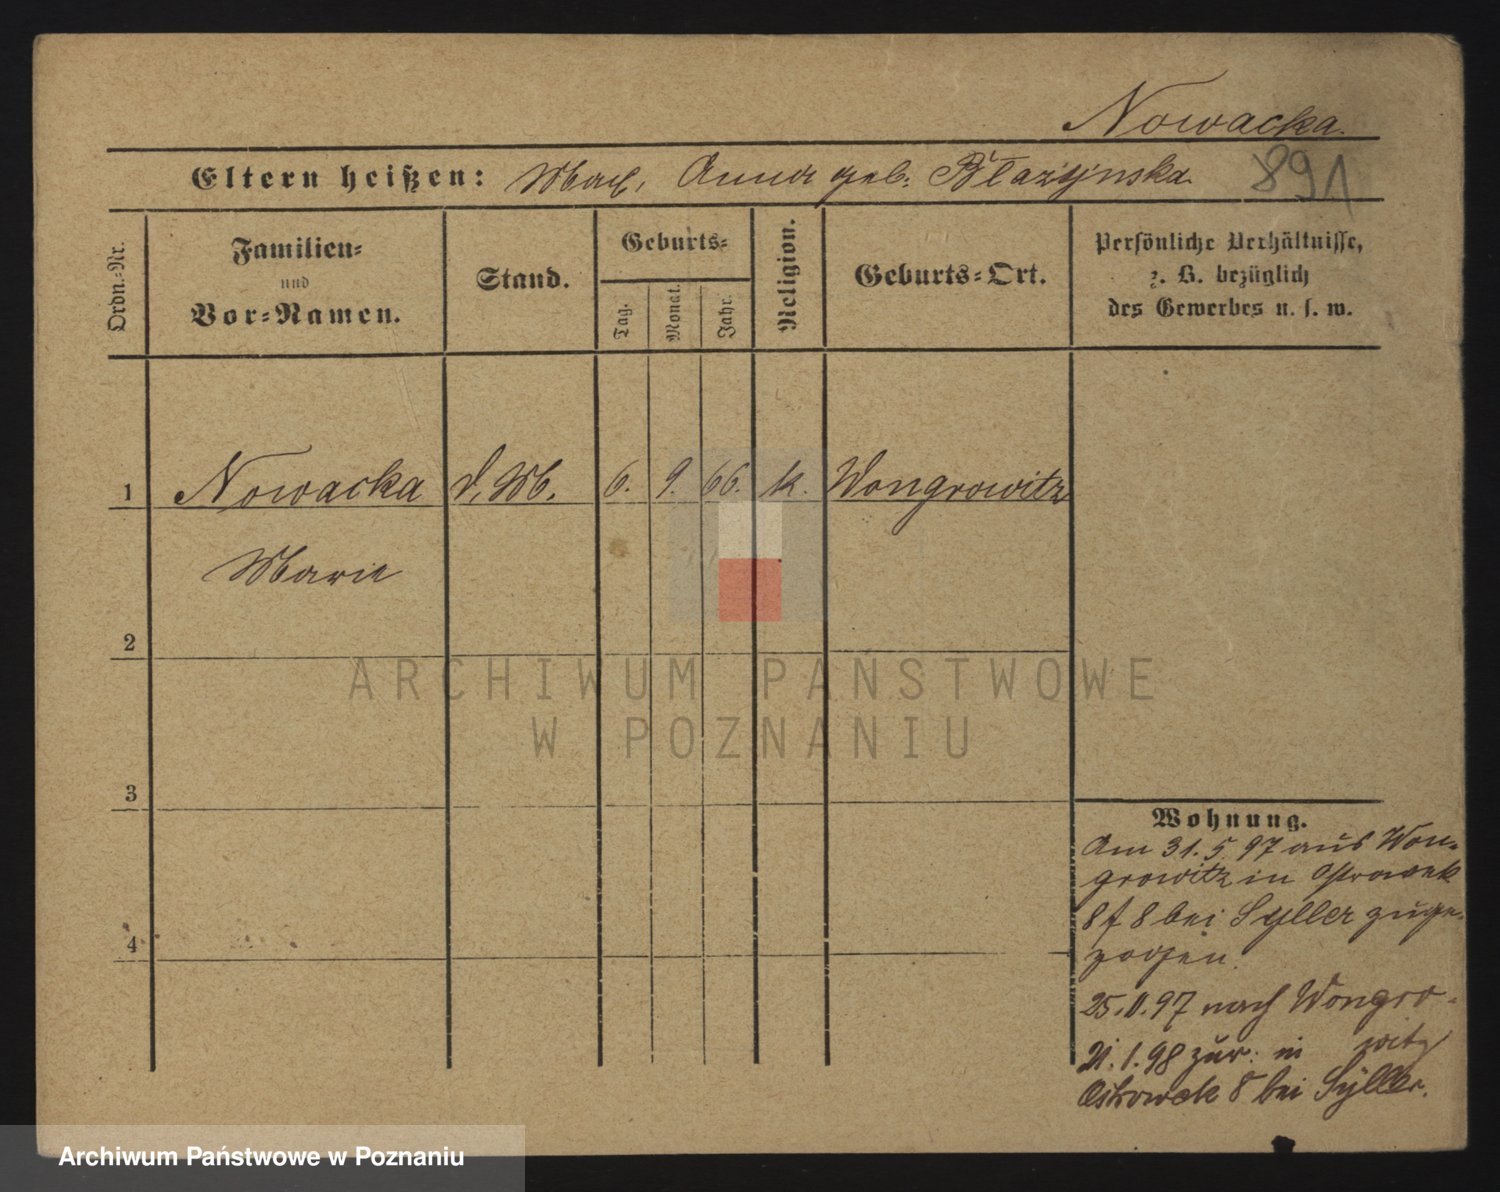 Nowacka.
Eltern heißen: Anna geb. Błażyńska
891
Ordn.-Nr.
Familien-
und
Vor-Namen.
Stand.
Geburts-
Tag.
Monat.
Jahr.
Religion.
Geburts-Ort.
Persönliche Verhältnisse,
z. B. bezüglich
des Gewerbes u. s. w.
1 Nowacka d. M. 6. 9. 66. k. Wongrowitz
Marie
2
3
4
Wohnung.
Am 31.5.97 aus Won-
growitz in Ostrowek
8 bei Syller zuge-
zogen.
97 nach Wongro-
witz
21.1.98 zur. in
Ostrowek 8 bei Syller.
ARCHIWUM PAŃSTWOWE
W POZNANIU
Archiwum Państwowe w Poznaniu